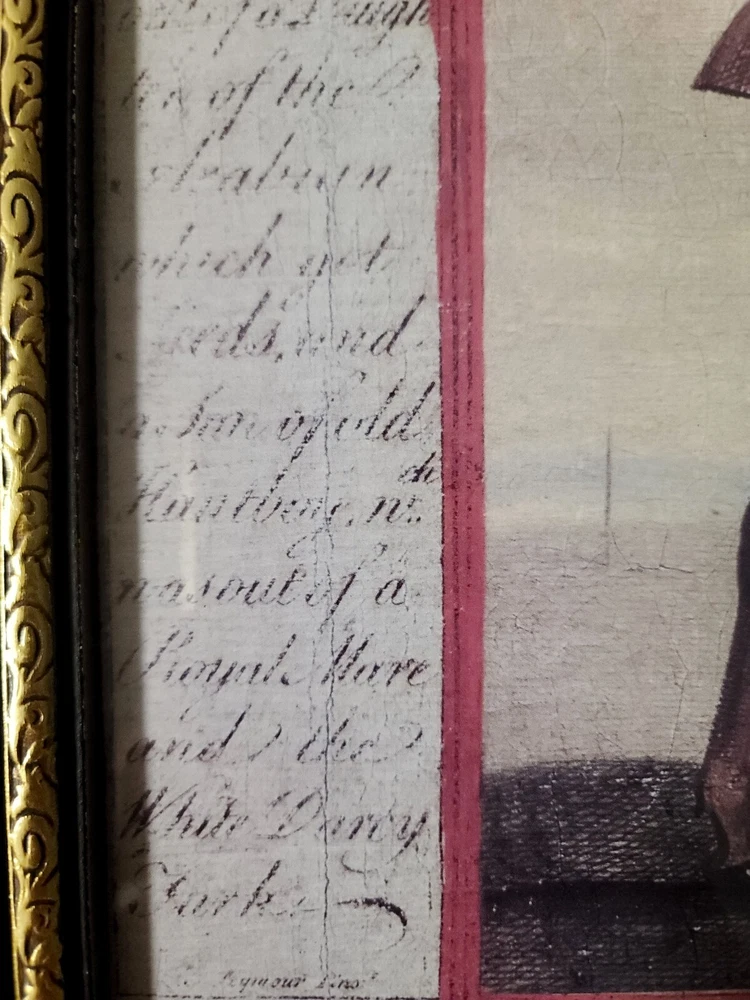 out of a Daugh
ter of the
Arabian
which got
Leeds, and
a Son of old
Hautboye, wch.
was out of a
Royal Mare
and the
White Darcy
Turk.
Seymour Pinxt